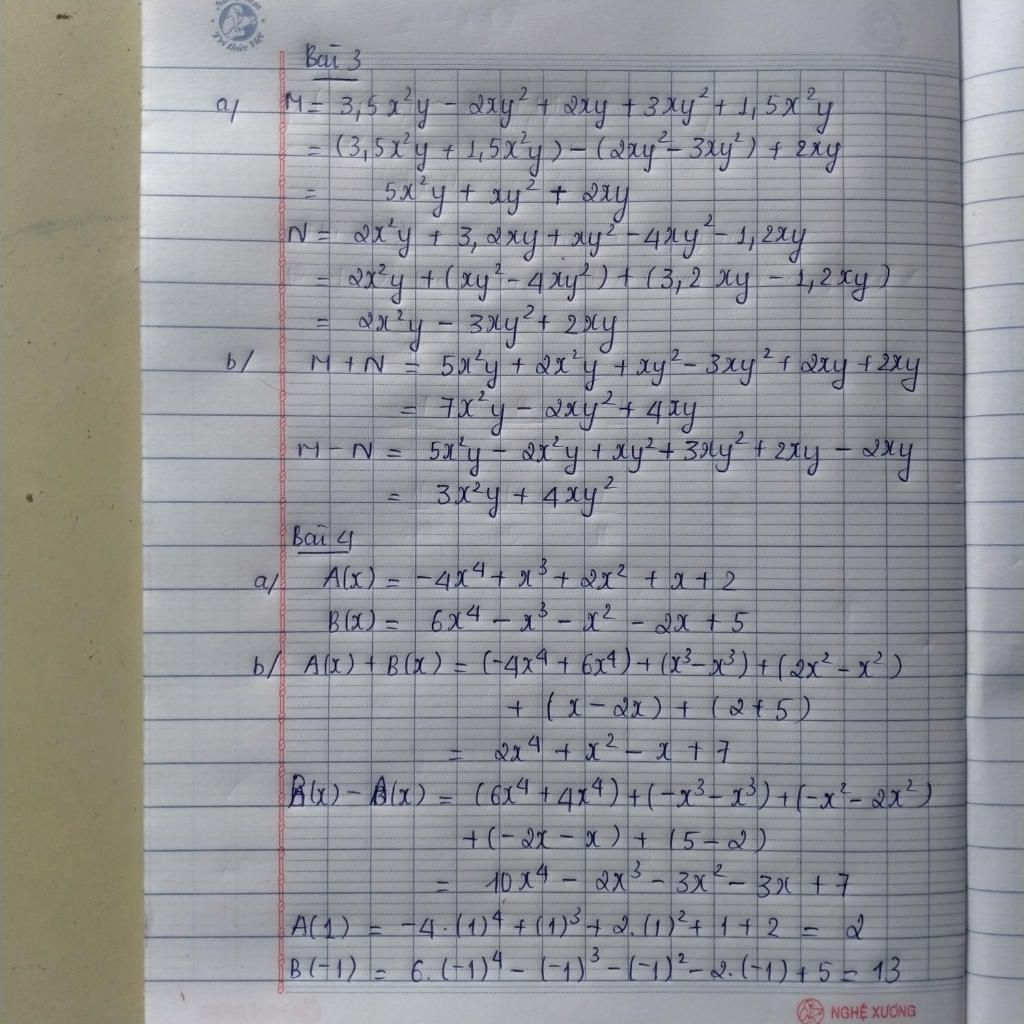 Trí thức Việt
Bài 3
a/ M = 3,5x²y - 2xy² + 2xy + 3xy² + 1,5x²y
= (3,5x²y + 1,5x²y) - (2xy² - 3xy²) + 2xy
= 5x²y + xy² + 2xy
N = 2x²y + 3,2xy + xy² - 4xy² - 1,2xy
= 2x²y + (xy² - 4xy²) + (3,2 xy - 1,2xy)
= 2x²y - 3xy² + 2xy
b/ M + N = 5x²y + 2x²y + xy² - 3xy² + 2xy + 2xy
= 7x²y - 2xy² + 4xy
M - N = 5x²y - 2x²y + xy² + 3xy² + 2xy - 2xy
= 3x²y + 4xy²
Bài 4
a/ A(x) = -4x⁴ + x³ + 2x² + x + 2
B(x) = 6x⁴ - x³ - x² - 2x + 5
b/ A(x) + B(x) = (-4x⁴ + 6x⁴) + (x³ - x³) + (2x² - x²)
+ (x - 2x) + (2 + 5)
= 2x⁴ + x² - x + 7
B(x) - A(x) = (6x⁴ + 4x⁴) + (-x³ - x³) + (-x² - 2x²)
+ (-2x - x) + (5 - 2)
= 10x⁴ - 2x³ - 3x² - 3x + 7
A(1) = -4.(1)⁴ + (1)³ + 2.(1)² + 1 + 2 = 2
B(-1) = 6.(-1)⁴ - (-1)³ - (-1)² - 2.(-1) + 5 = 13
NGHỆ XƯƠNG